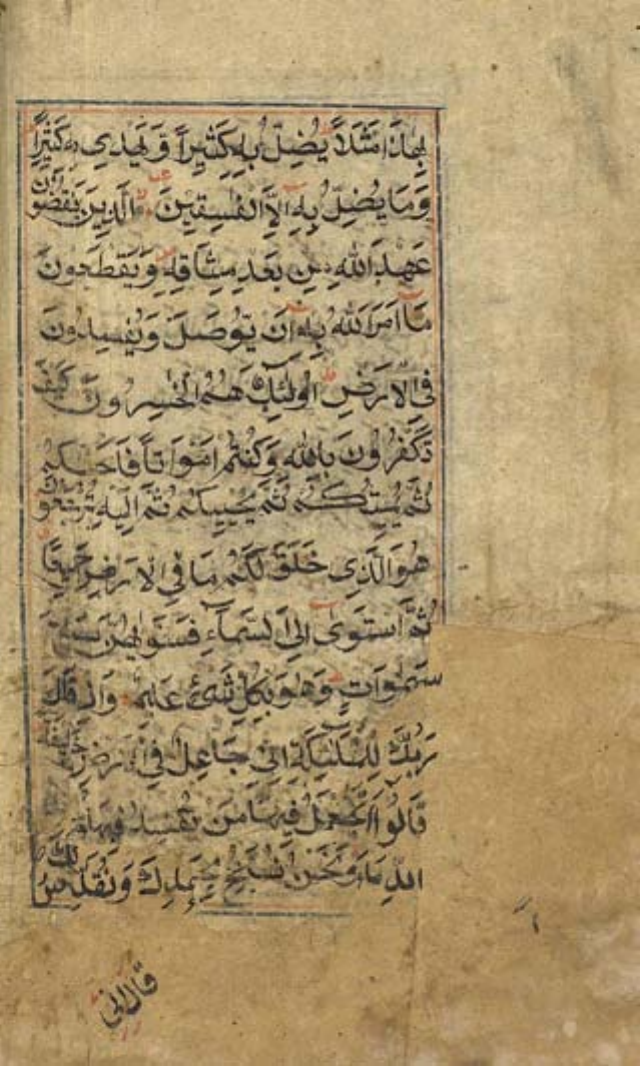 بِهٰذَا مَثَلًا يُضِلُّ بِهِ كَثِيرًا وَيَهْدِي بِهِ كَثِيرًا
وَمَا يُضِلُّ بِهِ اِلَّا الْفٰسِقِينَ الَّذِينَ يَنْقُضُونَ
عَهْدَ اللهِ مِنْ بَعْدِ مِيثَاقِهِ وَيَقْطَعُونَ
مَا اَمَرَ اللهُ بِهِ اَنْ يُوصَلَ وَيُفْسِدُونَ
فِي الْاَرْضِ اُولٰئِكَ هُمُ الْخٰسِرُونَ كَيْفَ
تَكْفُرُونَ بِاللهِ وَكُنْتُمْ اَمْوَاتًا فَاَحْيَاكُمْ
ثُمَّ يُمِيتُكُمْ ثُمَّ يُحْيِيكُمْ ثُمَّ اِلَيْهِ تُرْجَعُونَ
هُوَ الَّذِي خَلَقَ لَكُمْ مَا فِي الْاَرْضِ جَمِيعًا
ثُمَّ اسْتَوٰى اِلَى السَّمَاءِ فَسَوّٰيهُنَّ سَبْعَ
سَمٰوَاتٍ وَهُوَ بِكُلِّ شَيْءٍ عَلِيمٌ وَاِذْ قَالَ
رَبُّكَ لِلْمَلٰئِكَةِ اِنِّي جَاعِلٌ فِي الْاَرْضِ خَلِيفَةً
قَالُوا اَتَجْعَلُ فِيهَا مَنْ يُفْسِدُ فِيهَا
الدِّمَاءَ وَنَحْنُ نُسَبِّحُ بِحَمْدِكَ وَنُقَدِّسُ لَكَ
قال اني